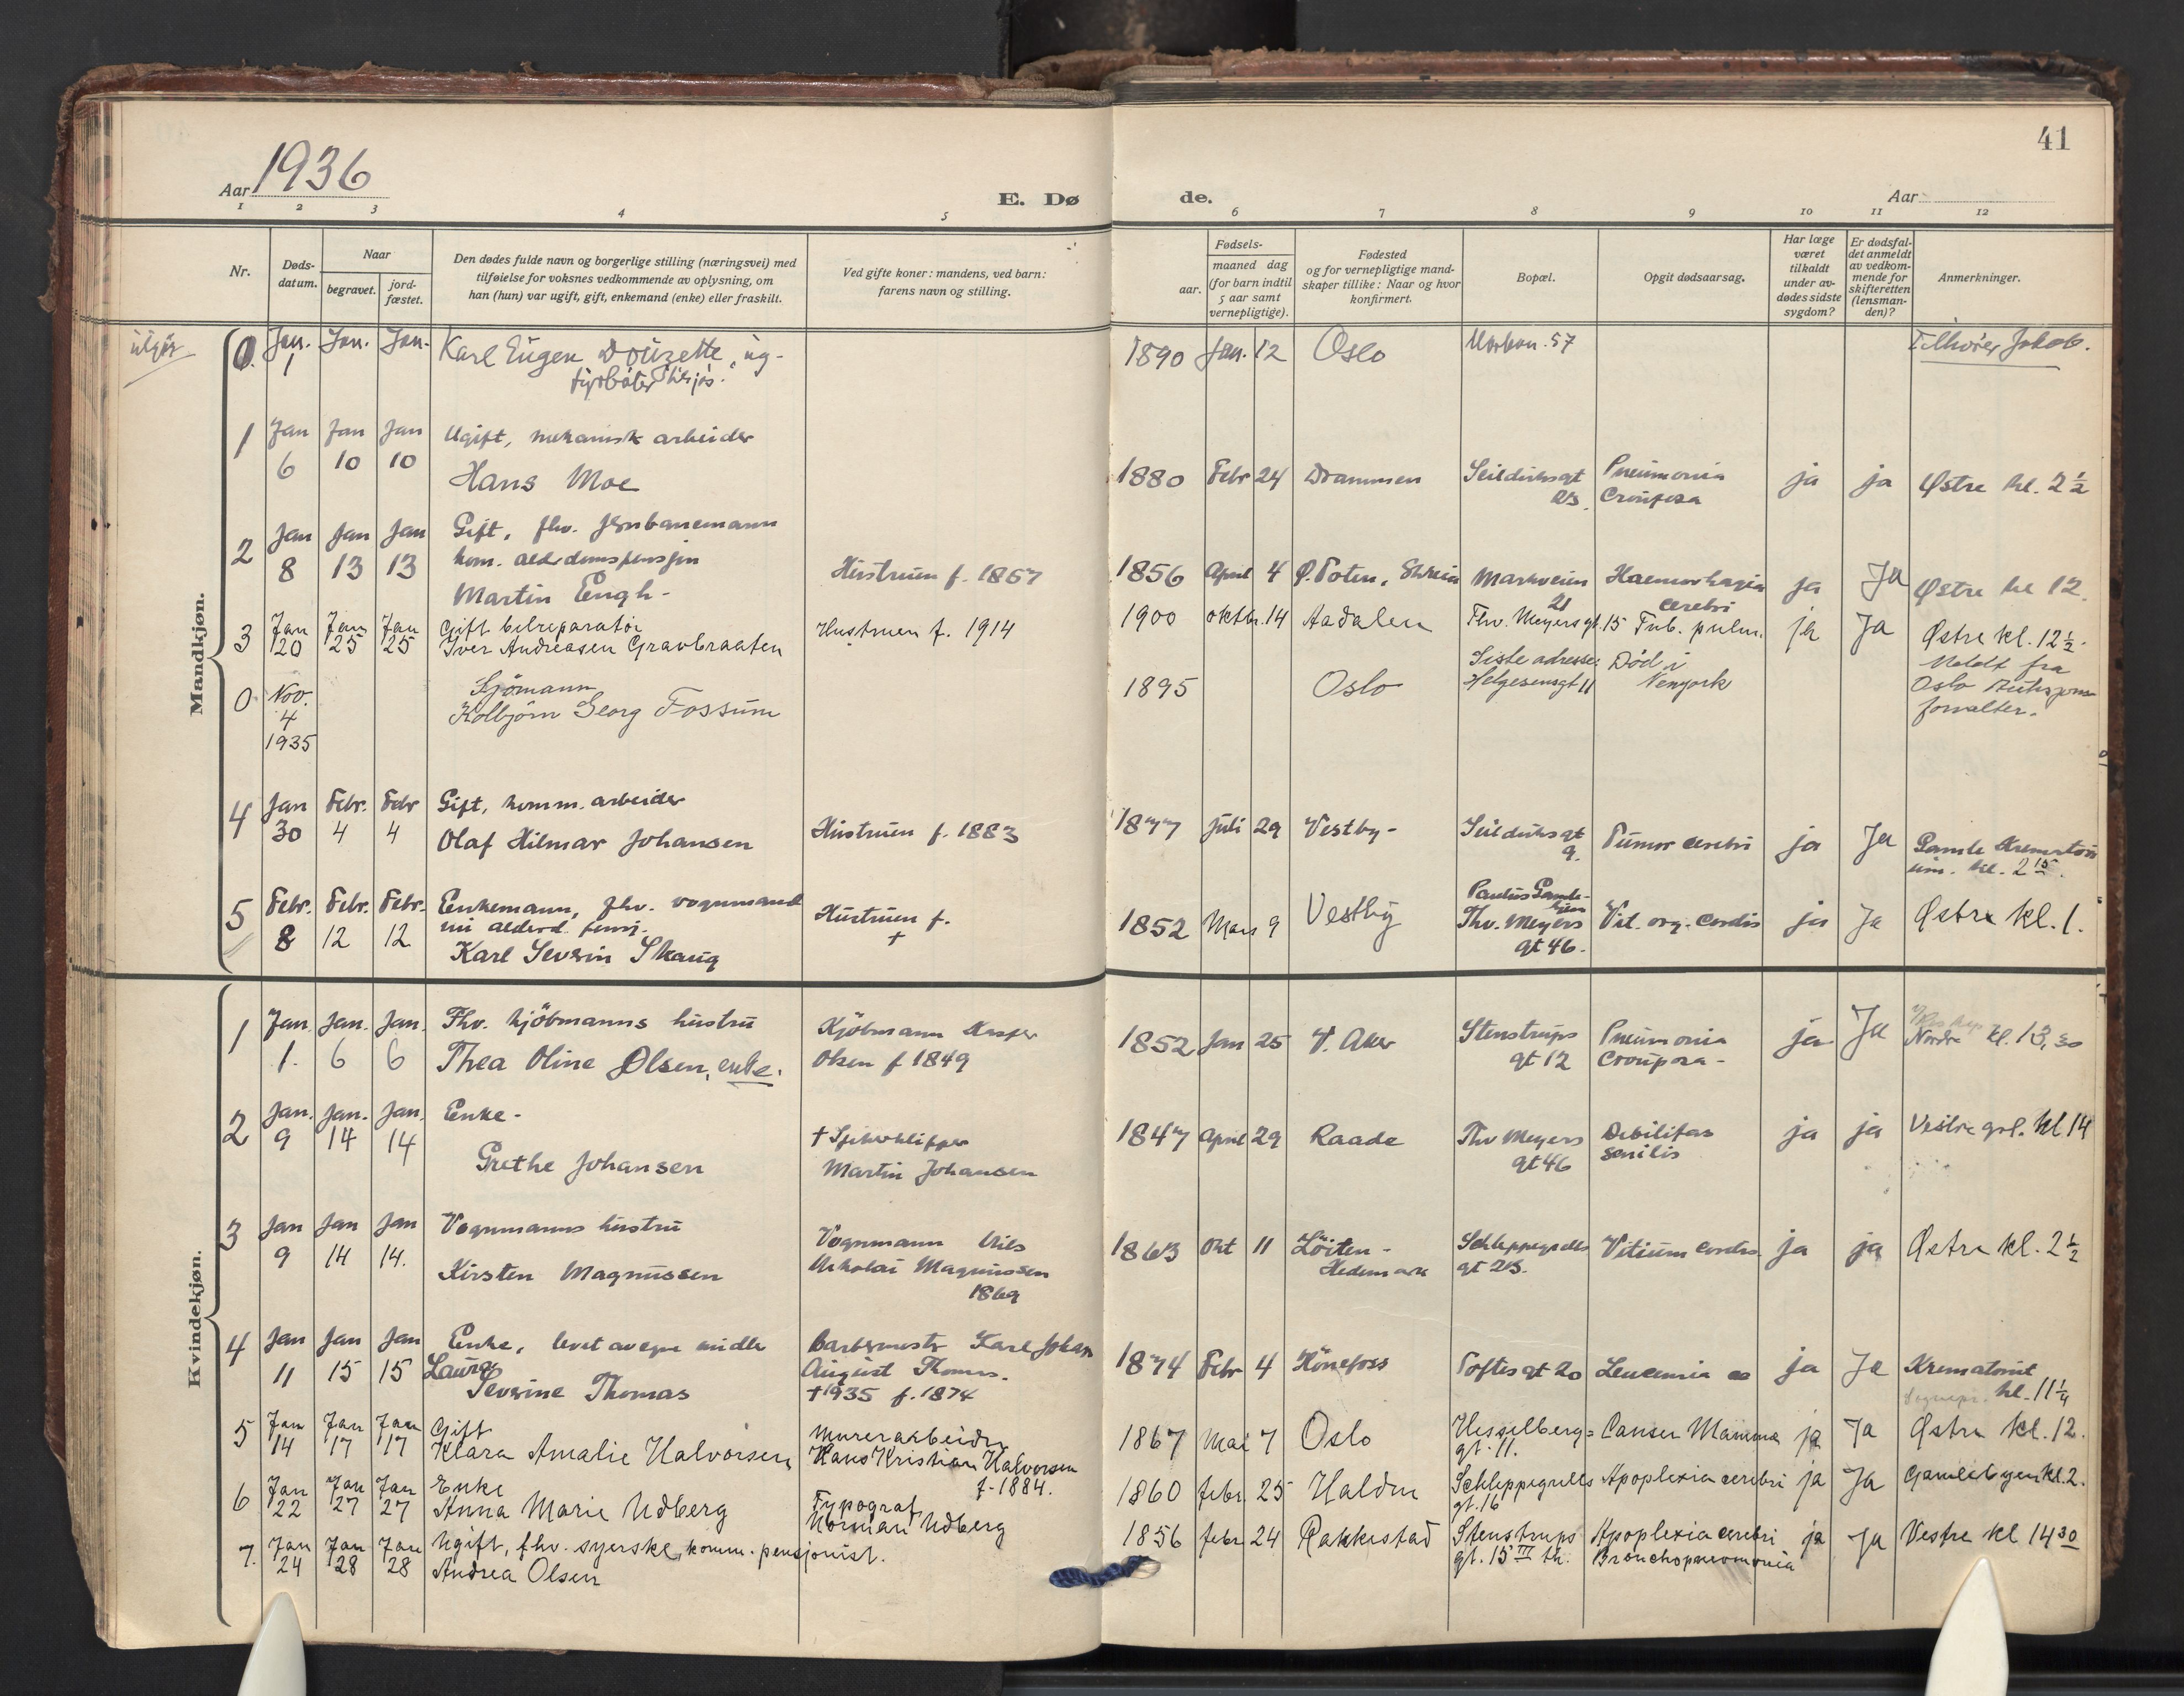 41
Aar 1936
E. Dø de.
Aar
1 2 3 4 5 6 7 8 9 10 11 12
Nr.
Døds-
datum.
Naar
begravet.
jord-
fæstet.
Den dødes fulde navn og borgerlige stilling (næringsvei) med
tilføielse for voksnes vedkommende av oplysning, om
han (hun) var ugift, gift, enkemand (enke) eller fraskilt.
Ved gifte koner: mandens, ved barn:
farens navn og stilling.
Fødsels-
aar.
maaned dag
(for barn indtil
5 aar samt
vernepligtige).
Fødested
og for vernepligtige mand-
skaper tillike: Naar og hvor
konfirmert.
Bopæl.
Opgit dødsaarsag.
Har læge
været
tilkaldt
under av-
dødes sidste
sygdom?
Er dødsfal-
det anmeldt
av vedkom-
mende for
skifteretten
(lensman-
den)?
Anmerkninger.
Mandkjøn.
utgår
0. Jan. Jan. Jan. Karl Eugen Douzette, ug- 1890 Jan. 12 Oslo 57 Tilhører Jakob.
1 fyrbøter
1 Jan Jan Jan Ugift, mekanisk arbeider
6 10 10 Hans Moe 1880 Febr 24 Drammen Seilduksgt Pneumonia ja ja Østre kl. 2 1/2
Crouposa
2 Jan Jan Jan Gift, fhv. Jernbanemann
8 13 13 kom. alderdomspensjon Hustruen f. 1867 1856 April 4 Ø. Toten, Skreia Markveien Haemorhagia ja Ja Østre kl 12.
Martin Engh - 21 cerebri
3 Jan Jan Jan Gift bilreparatør Hustruen f. 1914 1900 oktbr. 14 Aadalen Thv. Meyersgt. 15 Tub. pulm. ja Ja Østre kl. 12 1/2.
20 25 25 Iver Andreasen Gravbraaten
0 Nov. Sjømann 1895 Oslo Siste adresse: Død i Meldt fra
4 Kolbjørn Georg Fossum Helgesensgt 11 Newyork Oslo
1935 forvalter.
4 Jan Febr. Febr Gift, komm. arbeider
30 4 4 Olaf Hilmar Johansen Hustruen f. 1883 1877 juli 29 Vestby - Seilduksgt Tumor cerebri ja Ja Gamle Kremator-
9. ium. kl. 2 15.
5 Febr. Febr. Febr. Enkemann, fhv. vognmand Hustruen f. 1852 Mars 9 Vestby Thv. Meyers Vit. org. Cordis ja Ja Østre kl. 1.
8 12 12 nu alderd. pensj. † gt 46.
Karl Severin Skaug
Kvindekjøn.
1 Jan. Jan. Jan. Fhv. kjöbmanns hustru Kjöbmann Kasper 1852 Jan 25 V. Aker Stenstrups Pneumonia ja Ja Nordre kl. 13,30
1. 6 6 Thea Oline Olsen, enke. Olsen f 1849 gt 12 Crouposa -
2 Jan. Jan. Jan. Enke -
9 14 14 Grethe Johansen † Spikerklipper 1847 April 29 Raade Thv Meyers Debilitas ja ja Vestre grl. kl 14
Martin Johansen gt 46 senilis
3 Jan Jan Jan Vognmanns hustru Vognmann Nils
9 14 14. Kirsten Magnussen Nikolai Magnussen 1863 Okt 11 Löiten - Schleppegrells Vitium cordis ja ja Østre kl. 2 1/2
1869 Hedemark gt 23.
4 Jan Jan Jan Enke, levet av egne midle Barbermestr Karl Johan
11 15 15 Laura August Thomas. 1874 Febr 4 Hönefoss Toftesgt 20 Leucemia ja Ja Krematoriet
Severine Thomas † 1935 f. 1874 kl. 11 1/4
5 Jan Jan Jan Gift Murerarbeider 1867 Mai 7 Oslo Hesselberg= Canser Mamma ja Ja Østre kl. 12.
14 17 17 Klara Amalie Halvorsen Hans Kristian Halvorsen gt. 11.
f. 1884.
6 Jan Jan Jan Enke Typograf 1860 febr. 25 Halden Schleppegrells Apoplexia cerebri ja Ja Gamlebyen kl. 2.
22 27 27 Anna Marie Udberg Norman Udberg gt. 16
7. Jan Jan Jan Ugift, fhv. syerske, komm. pensjonist. 1856 febr 24 Rakkestad Stenstrups Apoplexia cerebri ja Ja Vestre kl 14 30
24 28 28 Andrea Olsen gt. 15 III th. Bronchopneumonia